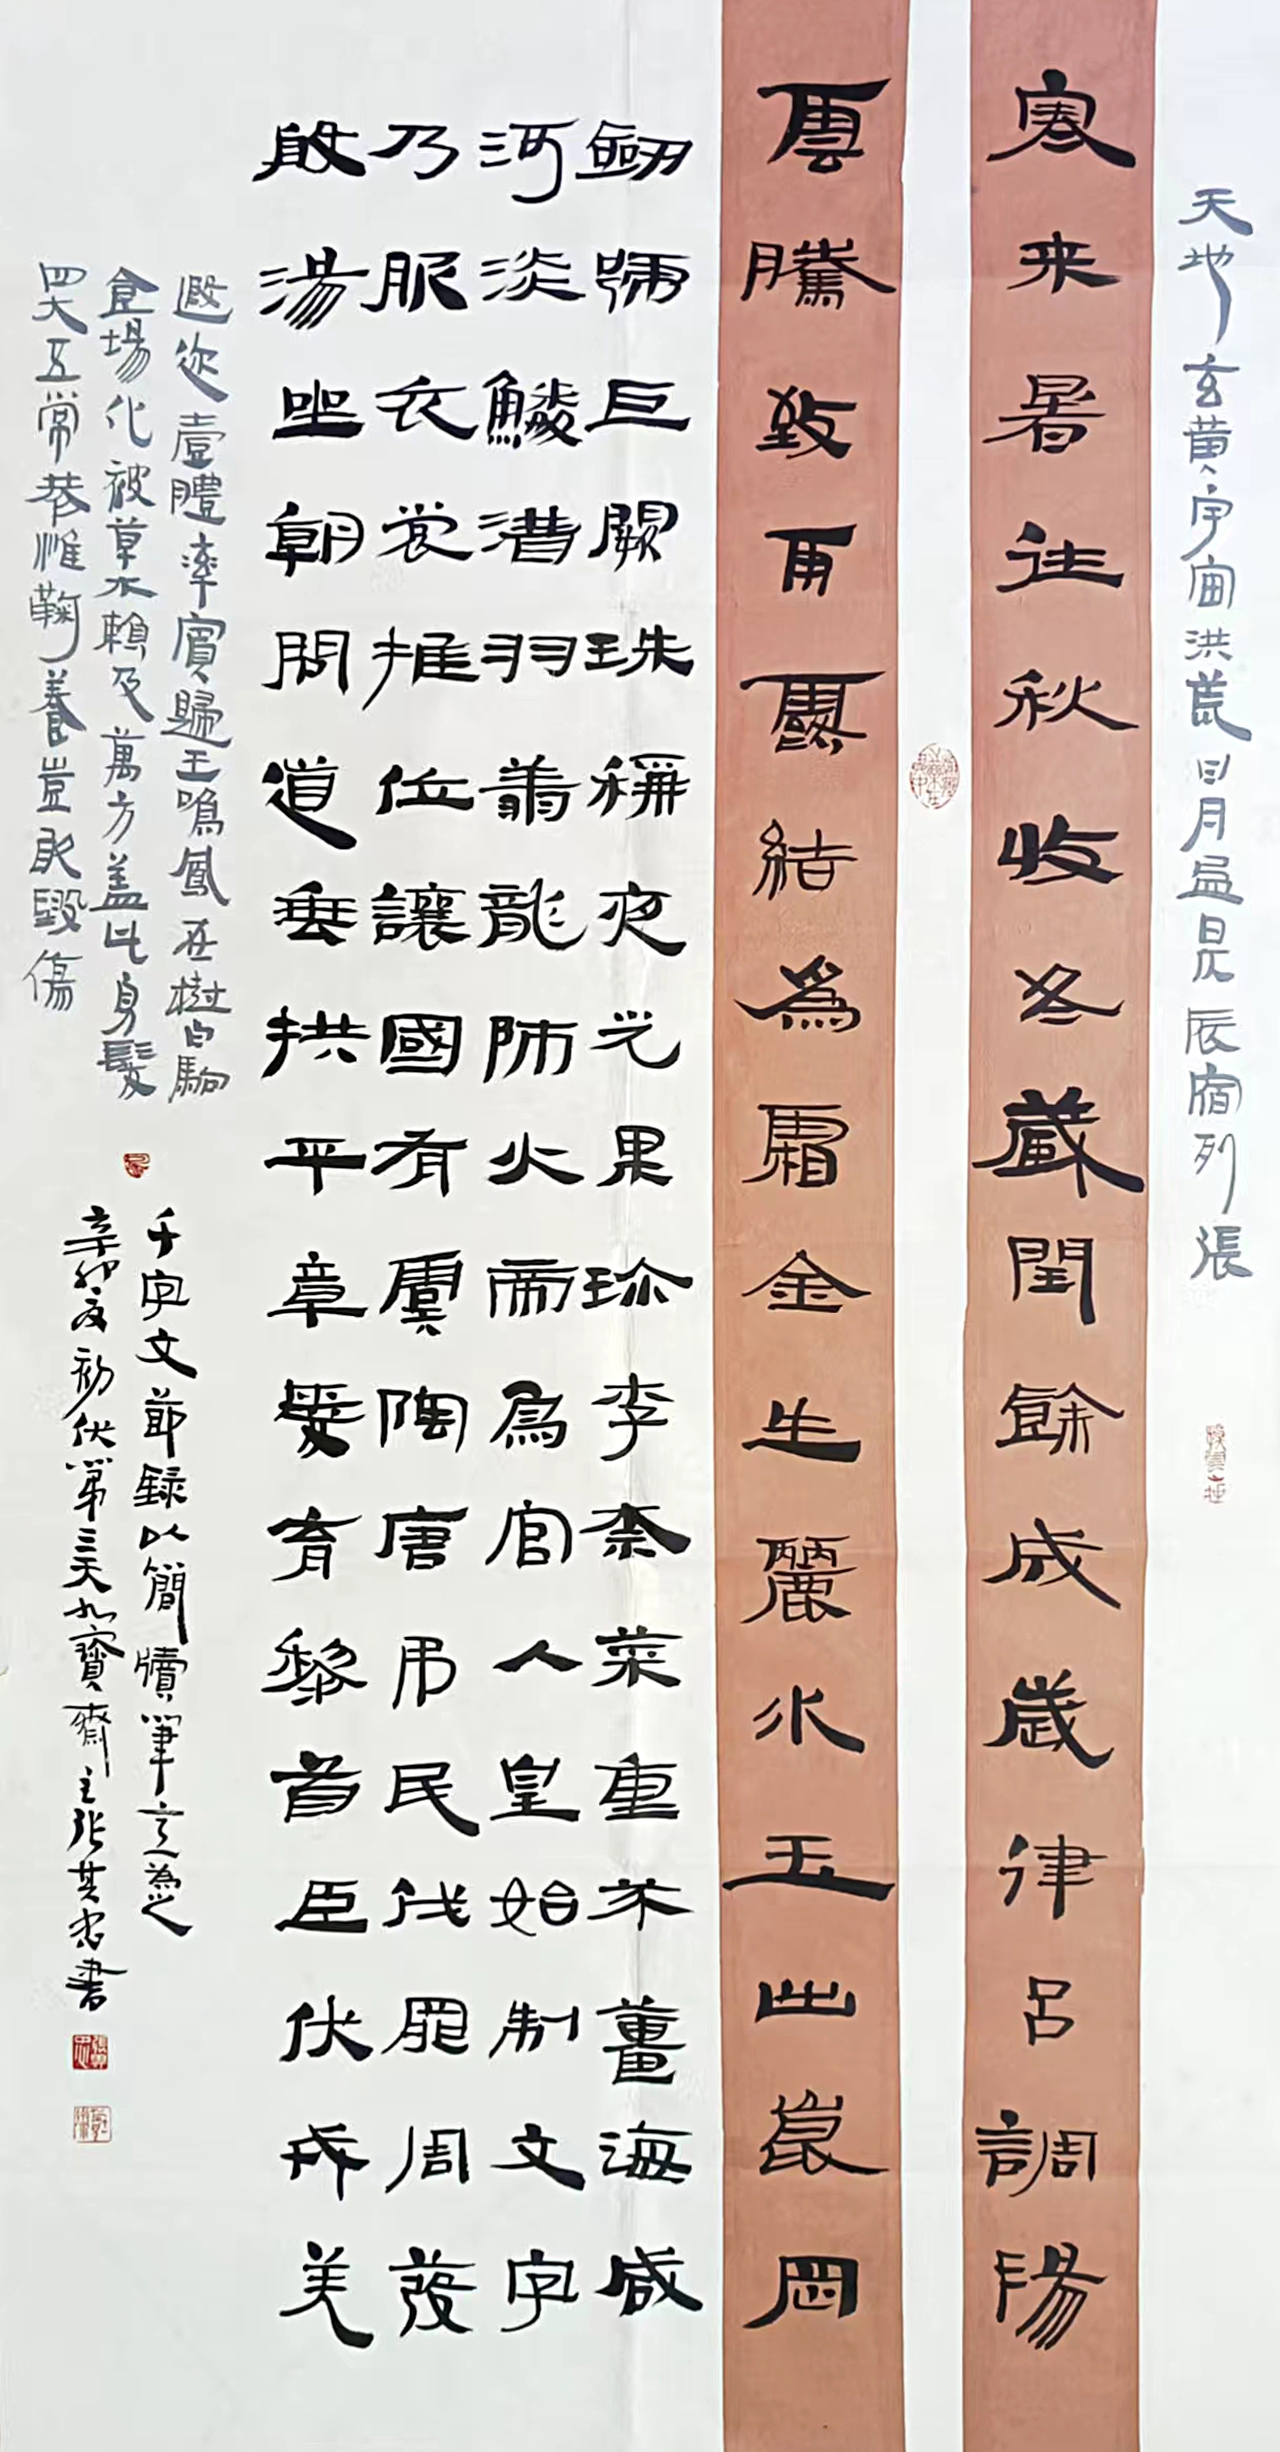 天地玄黄宇宙洪荒日月盈昃辰宿列張
寒来暑往秋收冬藏閏餘成歲律呂調陽
雲騰致雨露結為霜金生麗水玉出崑岡
劍號巨闕珠稱夜光果珍李柰菜重芥薑海咸
河淡鱗潜羽翔龍師火帝為官人皇始制文字
乃服衣裳推位讓國有虞陶唐弔民伐罪周發
殷湯坐朝問道垂拱平章愛育黎首臣伏戎羌
遐邇壹體率賓歸王鳴鳳在樹白駒
食場化被草木賴及萬方蓋此身髮
四大五常恭惟鞠養豈敢毀傷
千字文節録以簡牘筆意為之
辛卯夏初伏第三天九寶齋主張其忠書